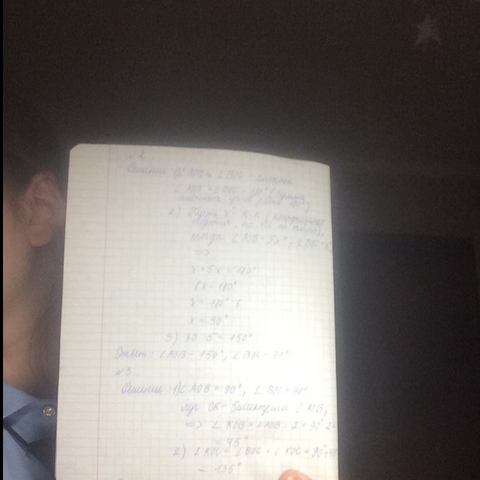 №2
Решение: 1) ∠AOB и ∠BOC - смежные
∠AOB + ∠BOC = 180° (сумма
смежных углов равна 180°)
2) Пусть x°
тогда ∠AOB - 5x°, ∠BOC - x°
=>
x + 5x = 180°
6x = 180°
x = 180° : 6
x = 30°
3) 30 · 5 = 150°
Ответ: ∠AOB - 150°, ∠BOC - 30°
№3
Решение: 1) ∠AOB = 90°, ∠BOC = 90°
луч OK - биссектриса ∠AOB,
=> ∠KOB = ∠AOB : 2 = 90° : 2 =
= 45°
2) ∠KOC = ∠BOC + ∠KOB = 90° + 45°
= 135°